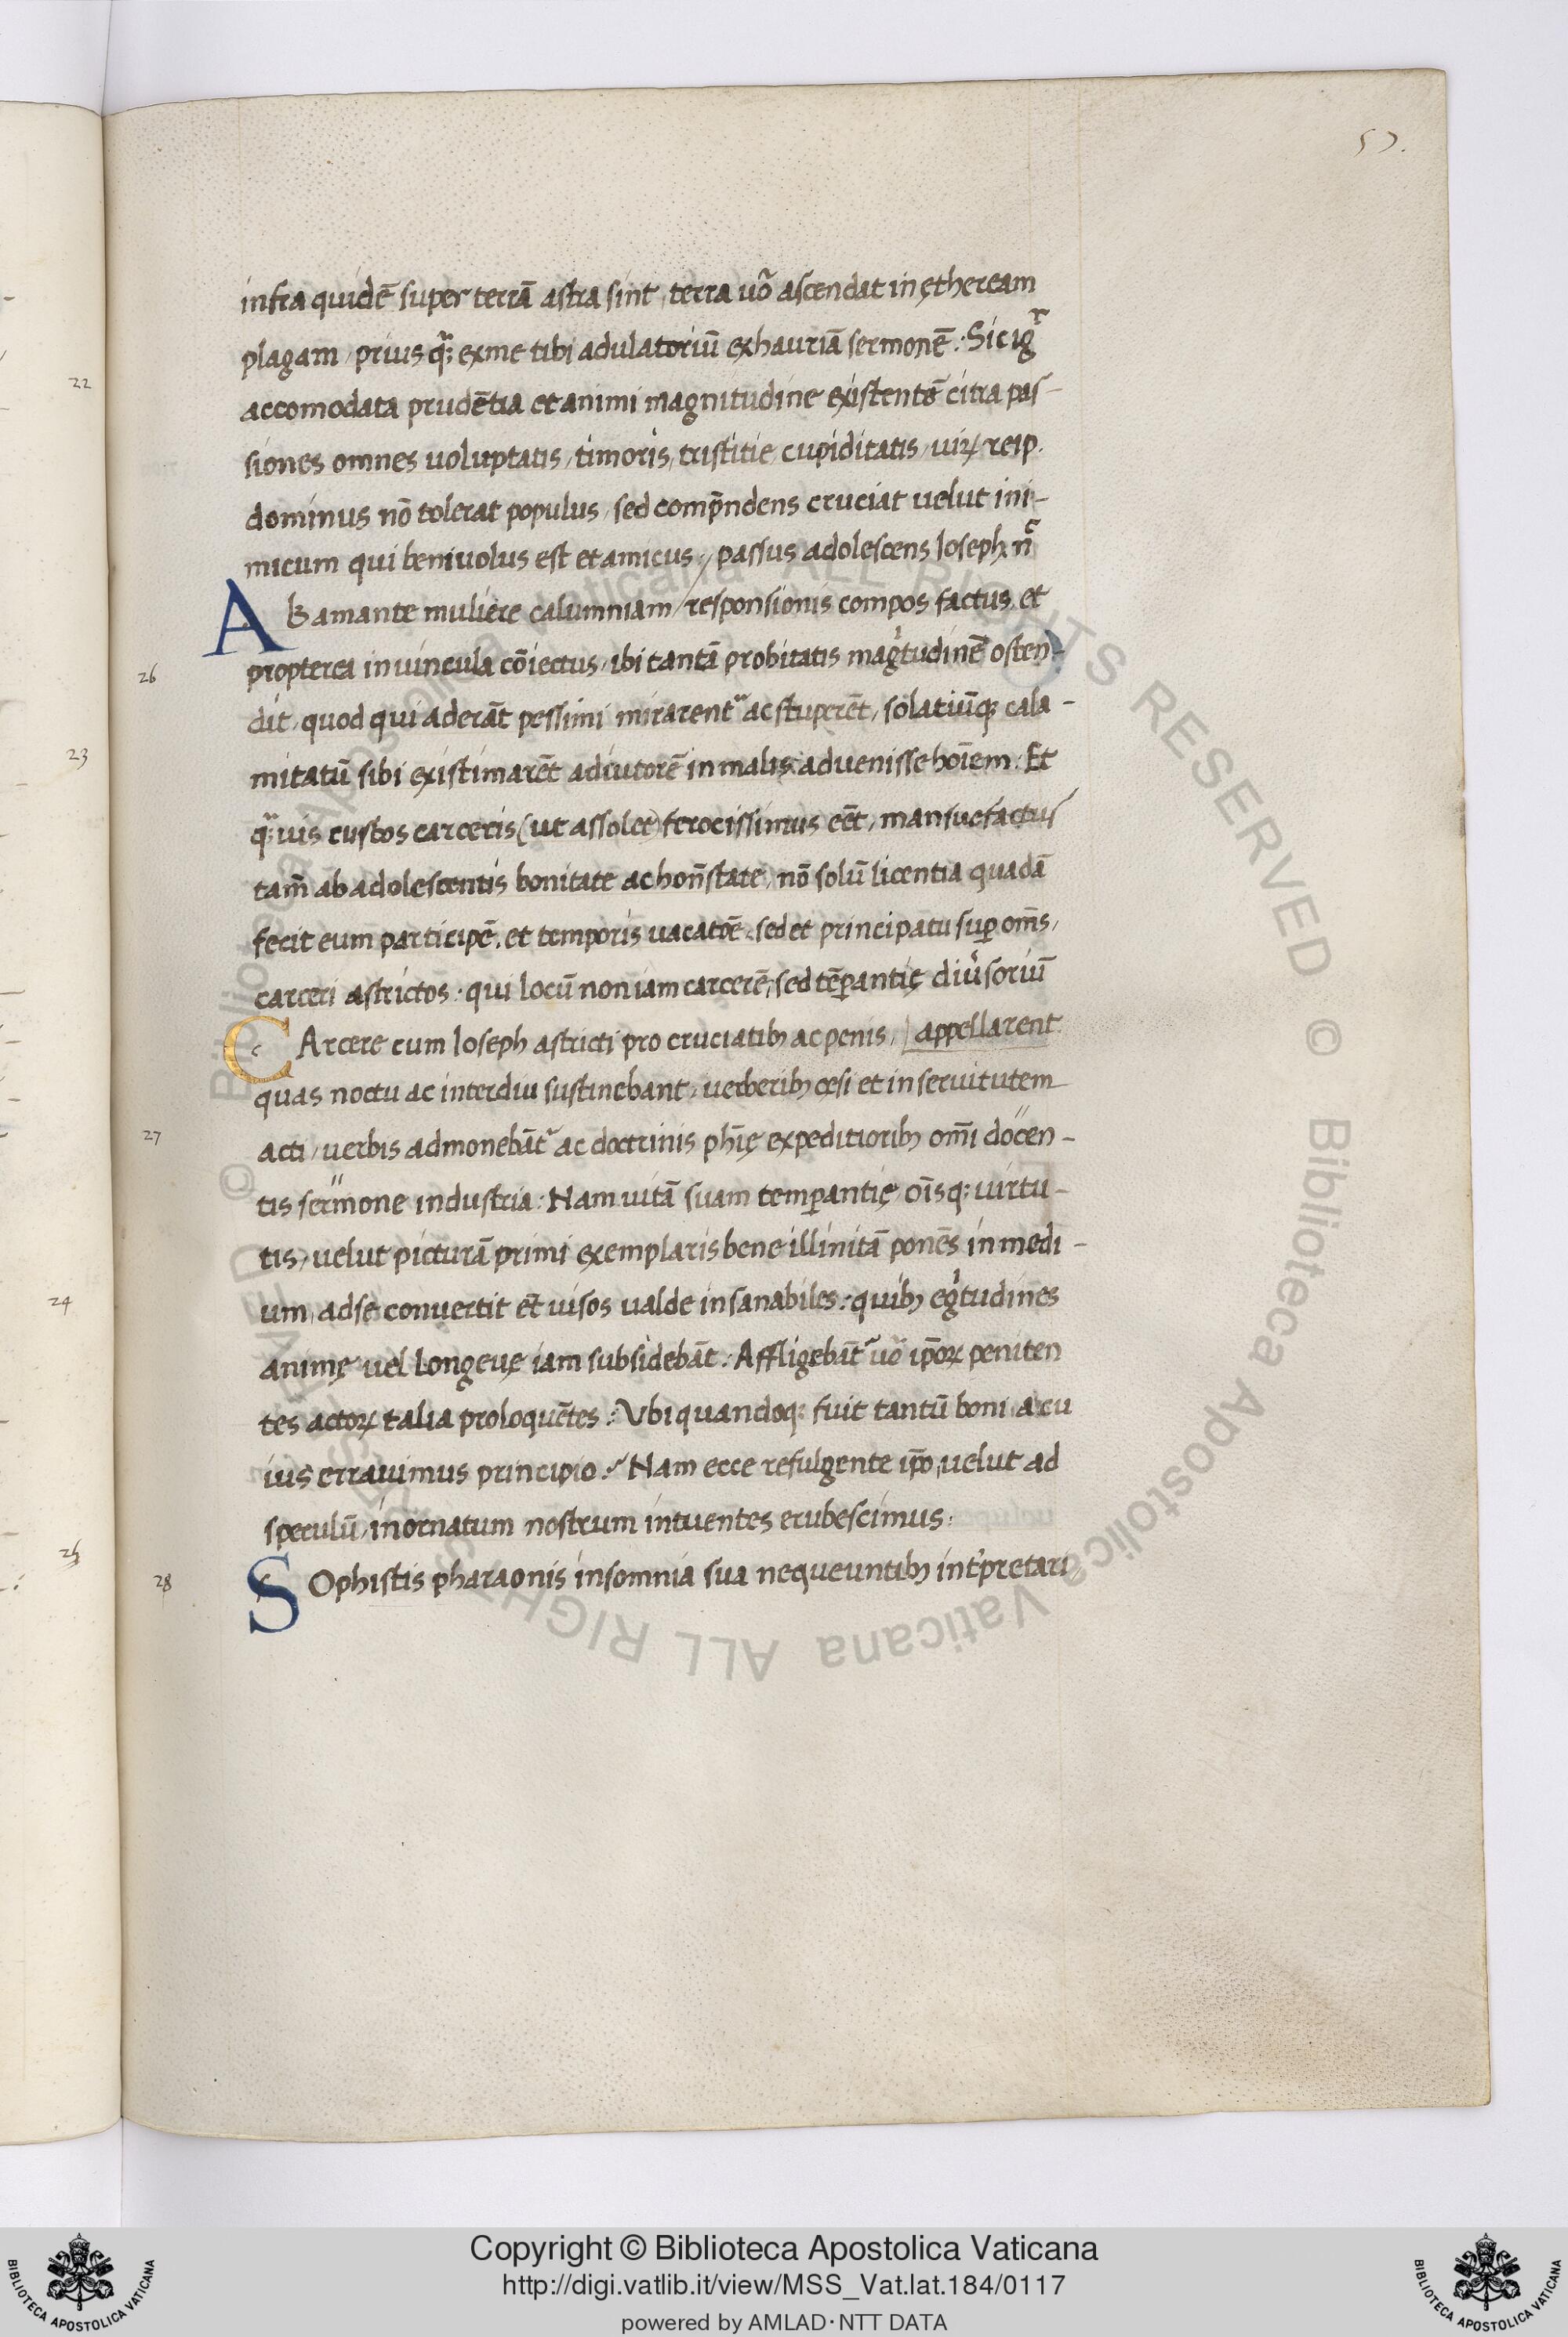 57.
infra quidē super terrā astra sint, terra uō ascendat in ętheream
plagam, prius q̃; ex me tibi adulatoriū exhauriā sermonē: Sic igr̃
22
accomodata prudētia et animi magnitudine existentē citra pas-
siones omnes uoluptatis, timoris, tristitie, cupiditatis, uirꝝ reip.
dominus nō tolerat populus, sed comp̄ndens cruciat uelut ini-
micum qui beniuolus est et amicus / passus adolescens Ioseph
AB amante muliere calumniam / responsionis compos factus, et
26
propterea in uincula cōiectus, ibi tantā probitatis magᵗtudinē osten-
dit, quod qui aderāt pessimi mirarent᷑ ac stuperēt, solatiūq; cala-
23
mitatū sibi existimarēt adiutorē in malis aduenisse hoīem: Et
q̃uis custos carceris (ut assolet) ferocissimus eēt, mansuefactus
tam̄ ab adolescentis bonitate ac hon̄state, nō solū licentia quadā
fecit eum participē, et temporis uacatōe, sed et principatu suꝑ om̄s,
carceri astrictos: qui locū non iam carcerē, sed tēꝑantię diu̓soriū
CArcere cum Ioseph astricti pro cruciatibꝫ ac penis, | appellarent
quas noctu ac interdiu sustinebant, uerberibꝫ cęsi et in seruitutem
27
acti, uerbis admonebāt᷑ ac doctrinis phīę expeditioribꝫ om̄i docen-
tis sermone industria: Nam uitā suam temꝑantię oīsq; uirtu-
tis, uelut picturā primi exemplaris bene illinitā ponēs in medi-
24
um, ad se conuertit et uisos ualde insanabiles: quibꝫ egᵗtudines
animę uel longeuę iam subsidebāt: Affligebāt᷑ uō ip̄oꝝ peniten
tes actoꝝ talia proloquētes: Vbi quandoq; fuit tantū boni a cu
ius errauimus principio? Nam ecce refulgente ip̄o, uelut ad
speculū, inornatum nostrum intuentes erubescimus:
25
28
SOphistis pharaonis insomnia sua nequeuntibꝫ int̓pretari
© Biblioteca Apostolica Vaticana ALL RIGHTS RESERVED
Copyright © Biblioteca Apostolica Vaticana
http://digi.vatlib.it/view/MSS_Vat.lat.184/0117
powered by AMLAD·NTT DATA
BIBLIOTECA APOSTOLICA VATICANA
BIBLIOTECA APOSTOLICA VATICANA